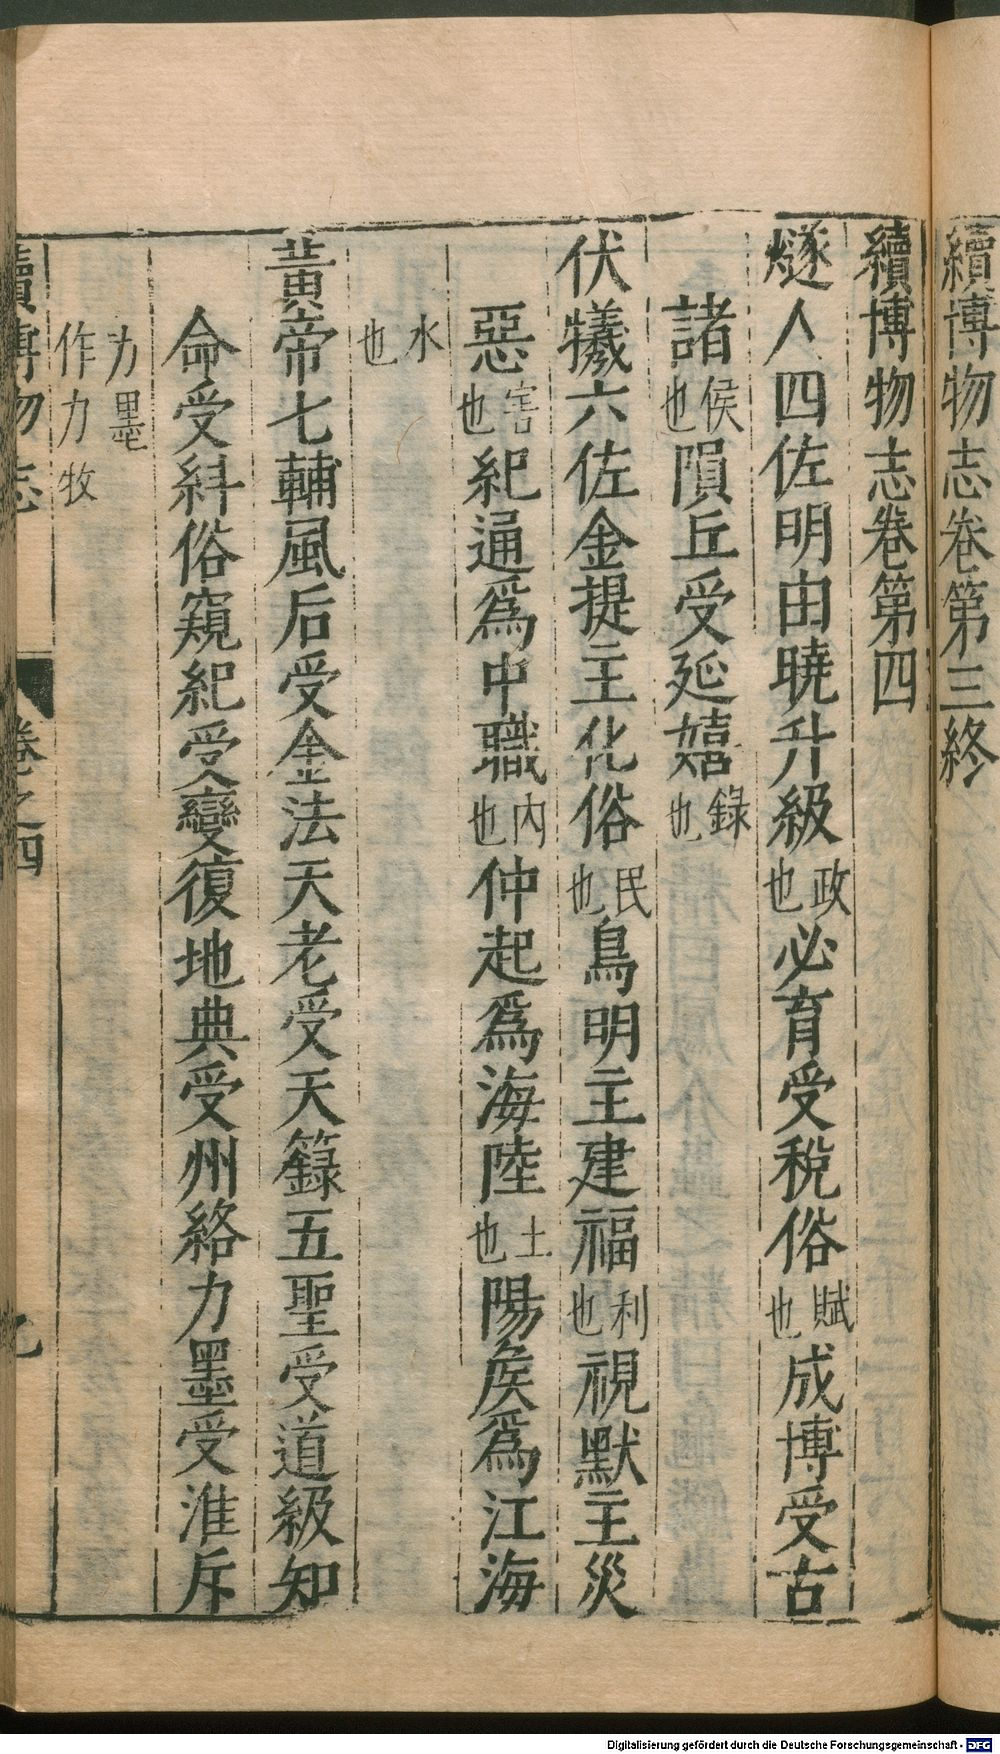 續博物志卷第三終
續博物志卷第四
燧人四佐明由曉升級政也必育受稅俗賦也成博受古
諸侯也隕丘受延嬉錄也
伏犧六佐金提主化俗民也鳥明主建福利也視默主災
惡害也紀通爲中職內也仲起爲海陸土也陽侯爲江海
水也
黃帝七輔風后受金法天老受天籙五聖受道級知
命受糾俗窺紀受變復地典受州絡力墨受准斥
力墨作力牧
續博物志 卷之四 九
Digitalisierung gefördert durch die Deutsche Forschungsgemeinschaft - DFG